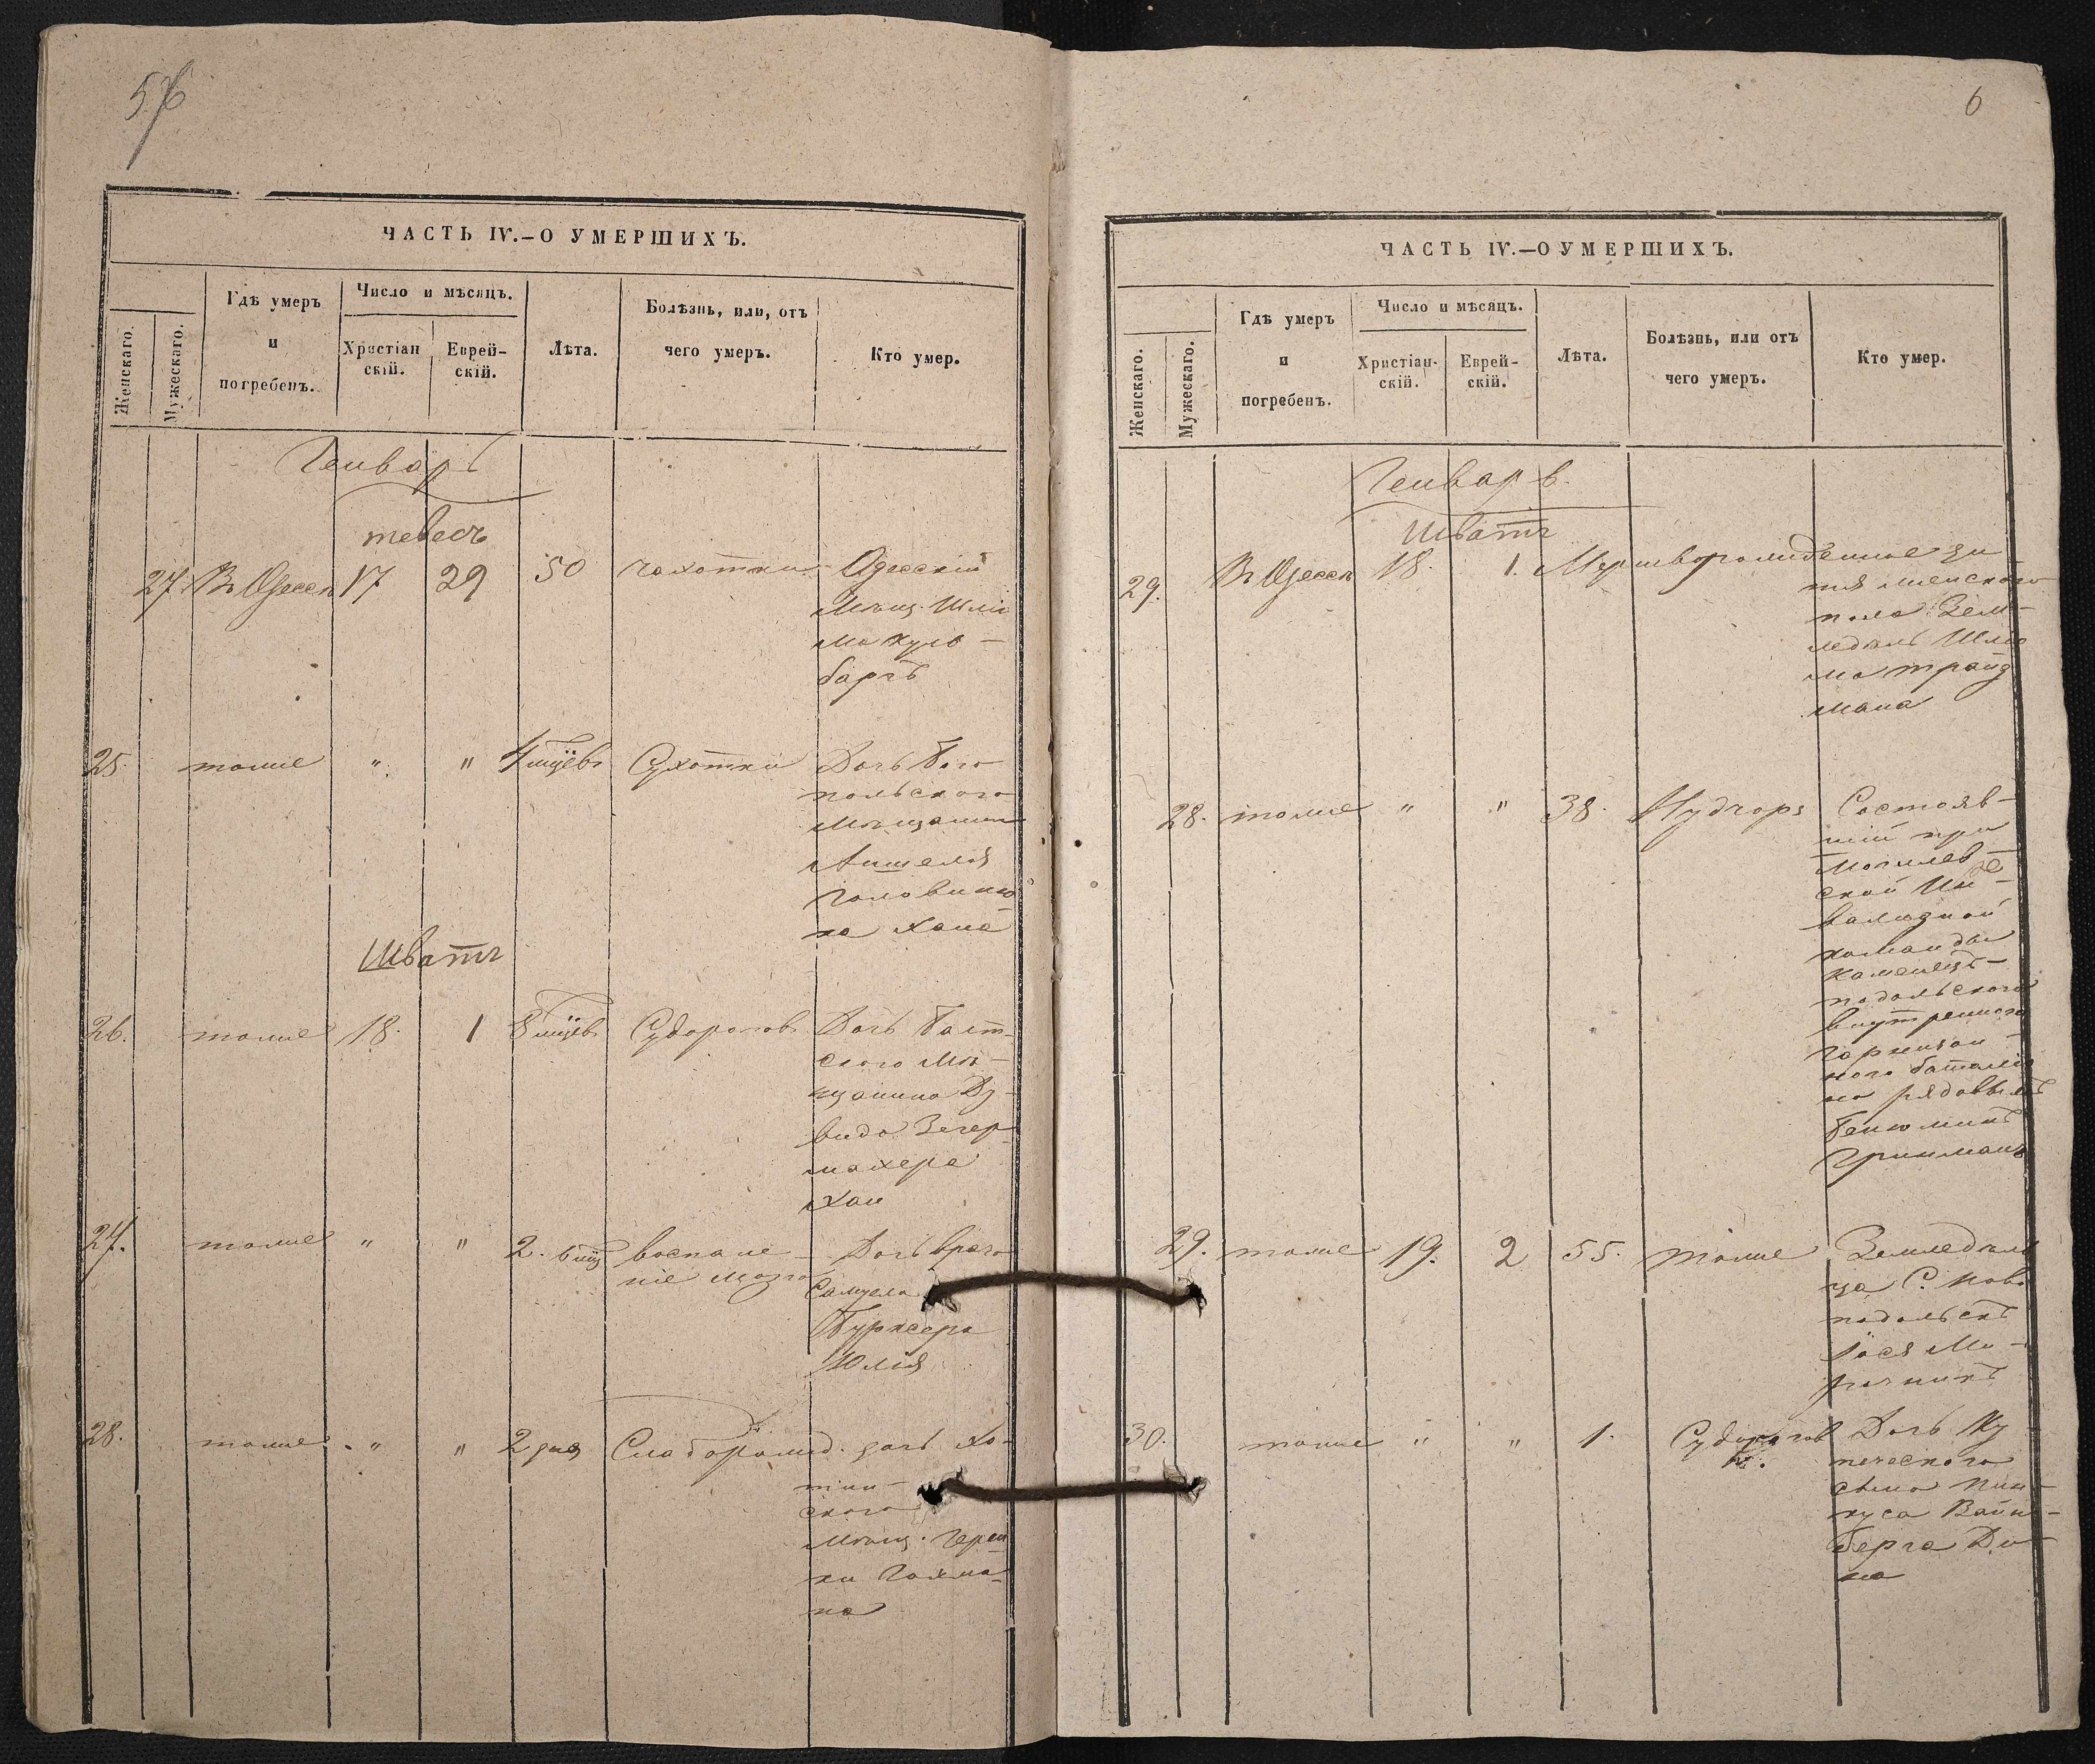 57
ЧАСТЬ IV.—О УМЕРШИХЪ.
Женскаго.
Мужескаго.
Гдѣ умеръ
и
погребенъ.
Число и мѣсяцъ.
Христіан
скій.
Еврей-
скій.
Лѣта.
Болѣзнь, или, отъ
чего умеръ.
Кто умер.
Генварь
тевесъ
27 Въ Одессѣ 17 29 50 чахотки Одесскій
Мѣщ. Шлі
ма
баргъ
25. тоже " " 4 мцевъ Сухотки Дочь Бого
польского
Мѣщанина
Аншеля
Головино
ка Хана
Шватъ
26. тоже 18. 1 8 мцевъ Судорогов Дочь Балт-
ского Мѣ-
щанина Ду-
вида Зегер
махера
Хаи
27. тоже " " 2. 6 мц воспале- Дочь врача
ніе мозга Самуела
Бурксера
Юлія
28. тоже " " 2 дня Слаборожд. дочь Хо-
тин-
ского
Мѣщ. Герш
ки Гохма-
на
6
ЧАСТЬ IV.—О УМЕРШИХЪ.
Женскаго.
Мужескаго.
Гдѣ умеръ
и
погребенъ.
Число и мѣсяцъ.
Христіан-
скій.
Еврей-
скій.
Лѣта.
Болѣзнь, или отъ
чего умеръ.
Кто умер.
Генварь.
Шватъ
29. Въ Одессѣ 18. 1. Мертворожденное ди
тя женского
пола Зем-
ледѣль Шлио
ма Трайд
мана
28. тоже " " 38. Состояв-
шій при
Могилев-
ской Ин-
валидной
команды
Каменецъ-
подольского
внутренного
гарнизон-
ного баталіо
на рядовый
Бенюминъ
Гринманъ
29. тоже 19. 2 55. тоже Земледѣль
ца С. Ново
подольскъ
Іося Мо-
рочникъ
30. тоже " " 1. Судорогов Дочь Ку
печеского
сына Пин-
куса Вайн-
берга Ди-
на